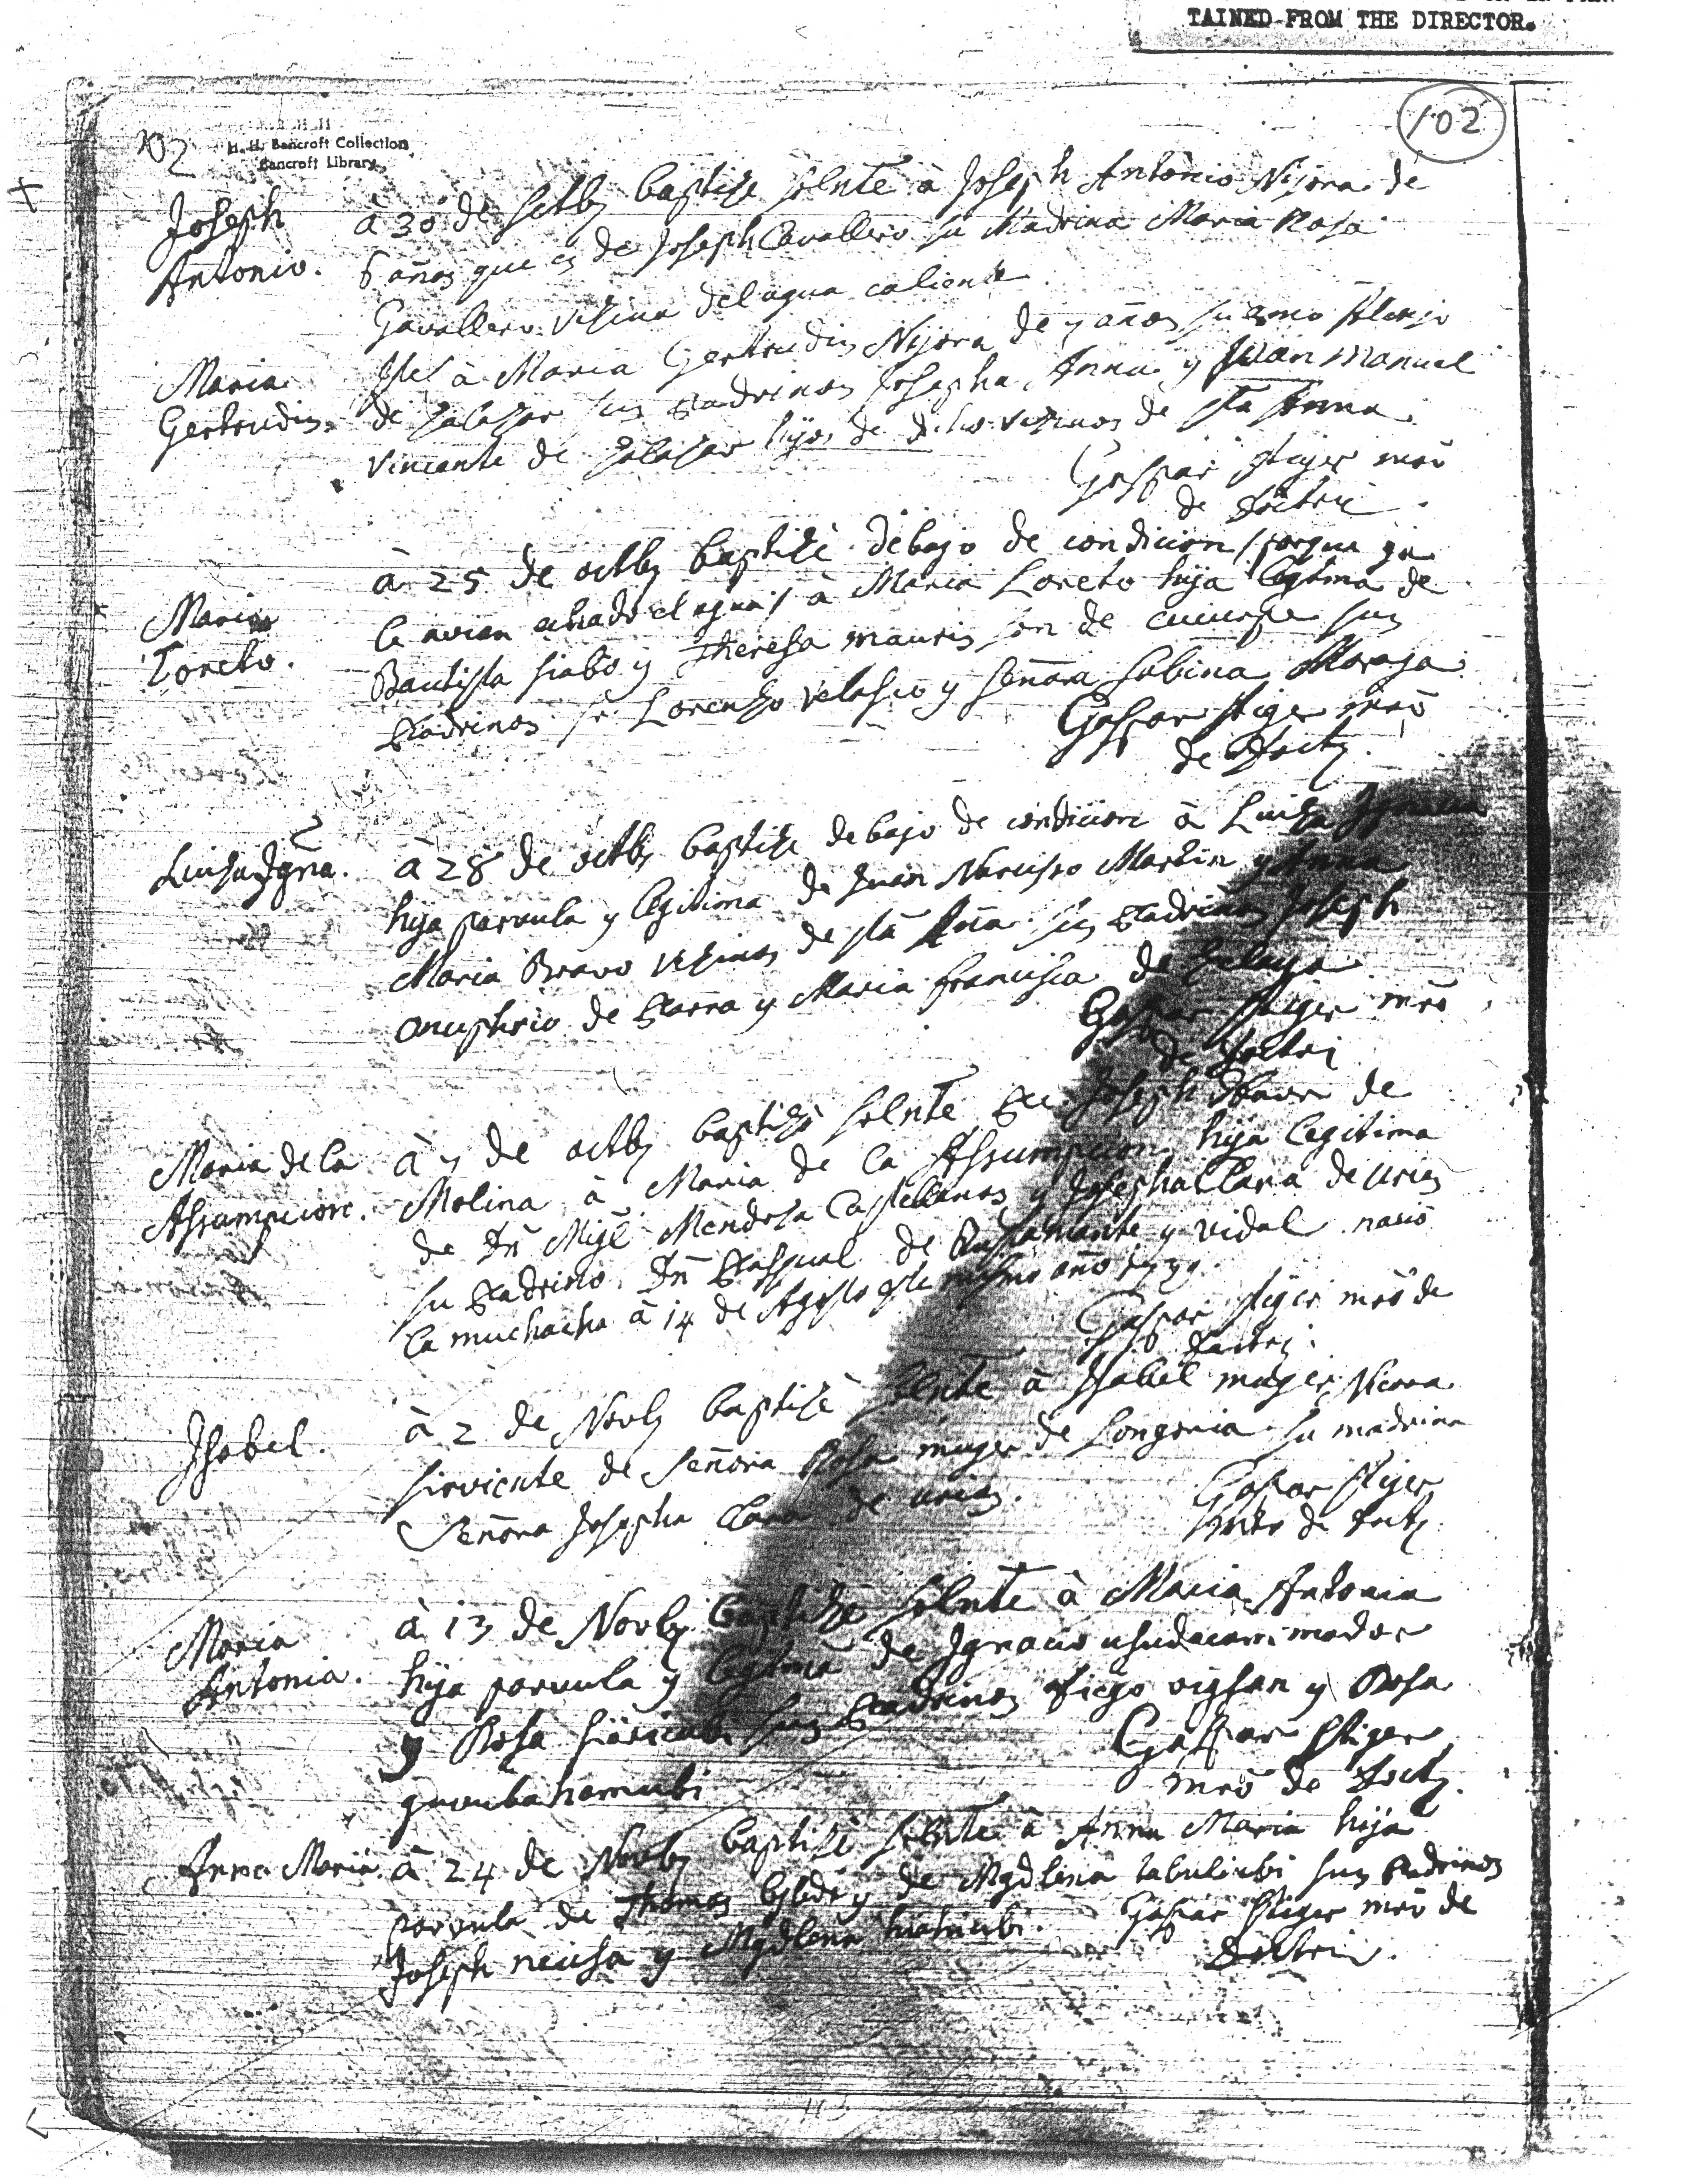 TAINED FROM THE DIRECTOR.
102
102
H. H. Bancroft Collection
Bancroft Library
Joseph
Antonio.
à 30 de settbe baptize solnte à Joseph Antonio Nijora de
6 años que es de Joseph Cavallero su Madrina Maria Rosa
Gavallero vesina del agua caliente.
Maria
Gertrudis.
Itel à Maria Gertrudis Nijora de 7 años su amo
de Salasar sus Padrinos Josepha Anna y Juan Manuel
Vincente de Salasar hijos de dicho vezinos de sta Anna
Gaspar Stiger mrô
de doctri.
Maria
Loreto.
à 25 de octbe baptizè debajo de condicion / porque ya
le avian echado el agua / à Maria Loreto hija legtma de
Bautista siabo y Theresa mauris son de cucurpe sus
Padrinos sr Lorenzo Velasco y señora Sabina Moraja
Gaspar Stiger mrô
de doctr.
Luisa Ignã.
à 28 de octbe baptize debajo de condicion à Luisa Ignacia
hija parvula y legitima de Juan Narcisso Martin y Anna
Maria Bravo vezinos de sta Anna sus Padrinos Joseph
Onuphrio de Parra y Maria francisca de
Gaspar Stiger mrô
de doctri
Maria de la
Assumpcion.
à 7 de octbe baptizò solnte Pe Joseph de
Molina à Maria de la Assumpcion hija legitima
de Dn Migl Mendosa Castellanos y Josepha Clara de Urias
su Padrino Dn Pasqual de Bustamante y vidal nacio
la muchacha à 14 de Agosto
Gaspar Stiger mrô de
doctri.
Isabel.
à 2 de Novbe baptizè solnte à Isabel muger Nicora
sirviente de señora Rosa muger de Longoria su madrina
Señora Josepha Clara de urias.
Gaspar Stiger
mrô de doctr.
Maria
Antonia.
à 13 de Novbe baptizè solnte à Maria Antonia
hija parvula y legtma de Ignacio
y Rosa sus Padrinos Diego y Rosa
Gaspar Stiger
mrô de doctr.
Anna Maria.
à 24 de Novbe baptizè solnte à Anna Maria hija
parvula de Thomas y de Mgdlena sus Padrinos
Joseph neusa y Mgdlena
Gaspar Stiger mrô de
doctri.